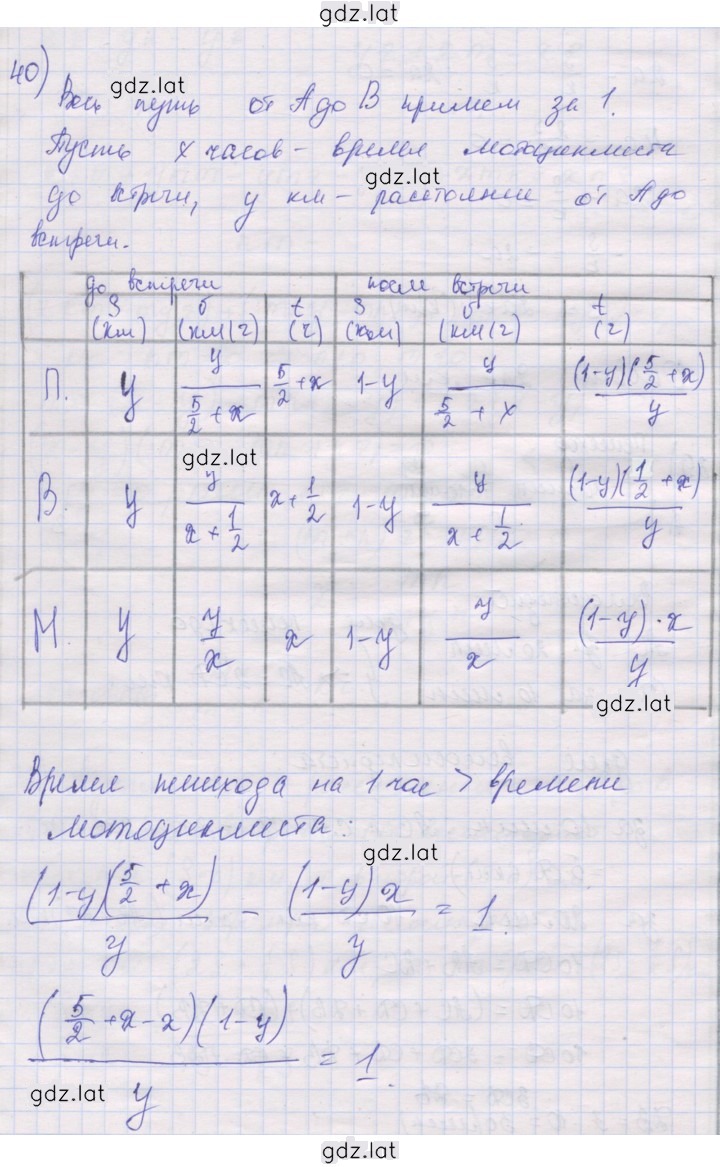 gdz.lat
40)
gdz.lat
Весь путь от А до В примем за 1.
Пусть x часов - время мотоциклиста
gdz.lat
до встречи, y км - расстояние от А до
встречи.
до встречи после встречи
S (км) v (км/ч) t (ч) S (км) v (км/ч) t (ч)
П. y y/(5/2 + x) 5/2 + x 1-y y/(5/2 + x) (1-y)(5/2 + x)/y
gdz.lat
В. y y/(x + 1/2) x + 1/2 1-y y/(x + 1/2) (1-y)(1/2 + x)/y
М. y y/x x 1-y y/x (1-y)·x/y
gdz.lat
Время пешехода на 1 час > времени
мотоциклиста:
gdz.lat
(1-y)(5/2 + x)/y - (1-y)x/y = 1.
(5/2 + x - x)(1-y)/y = 1.
gdz.lat
gdz.lat